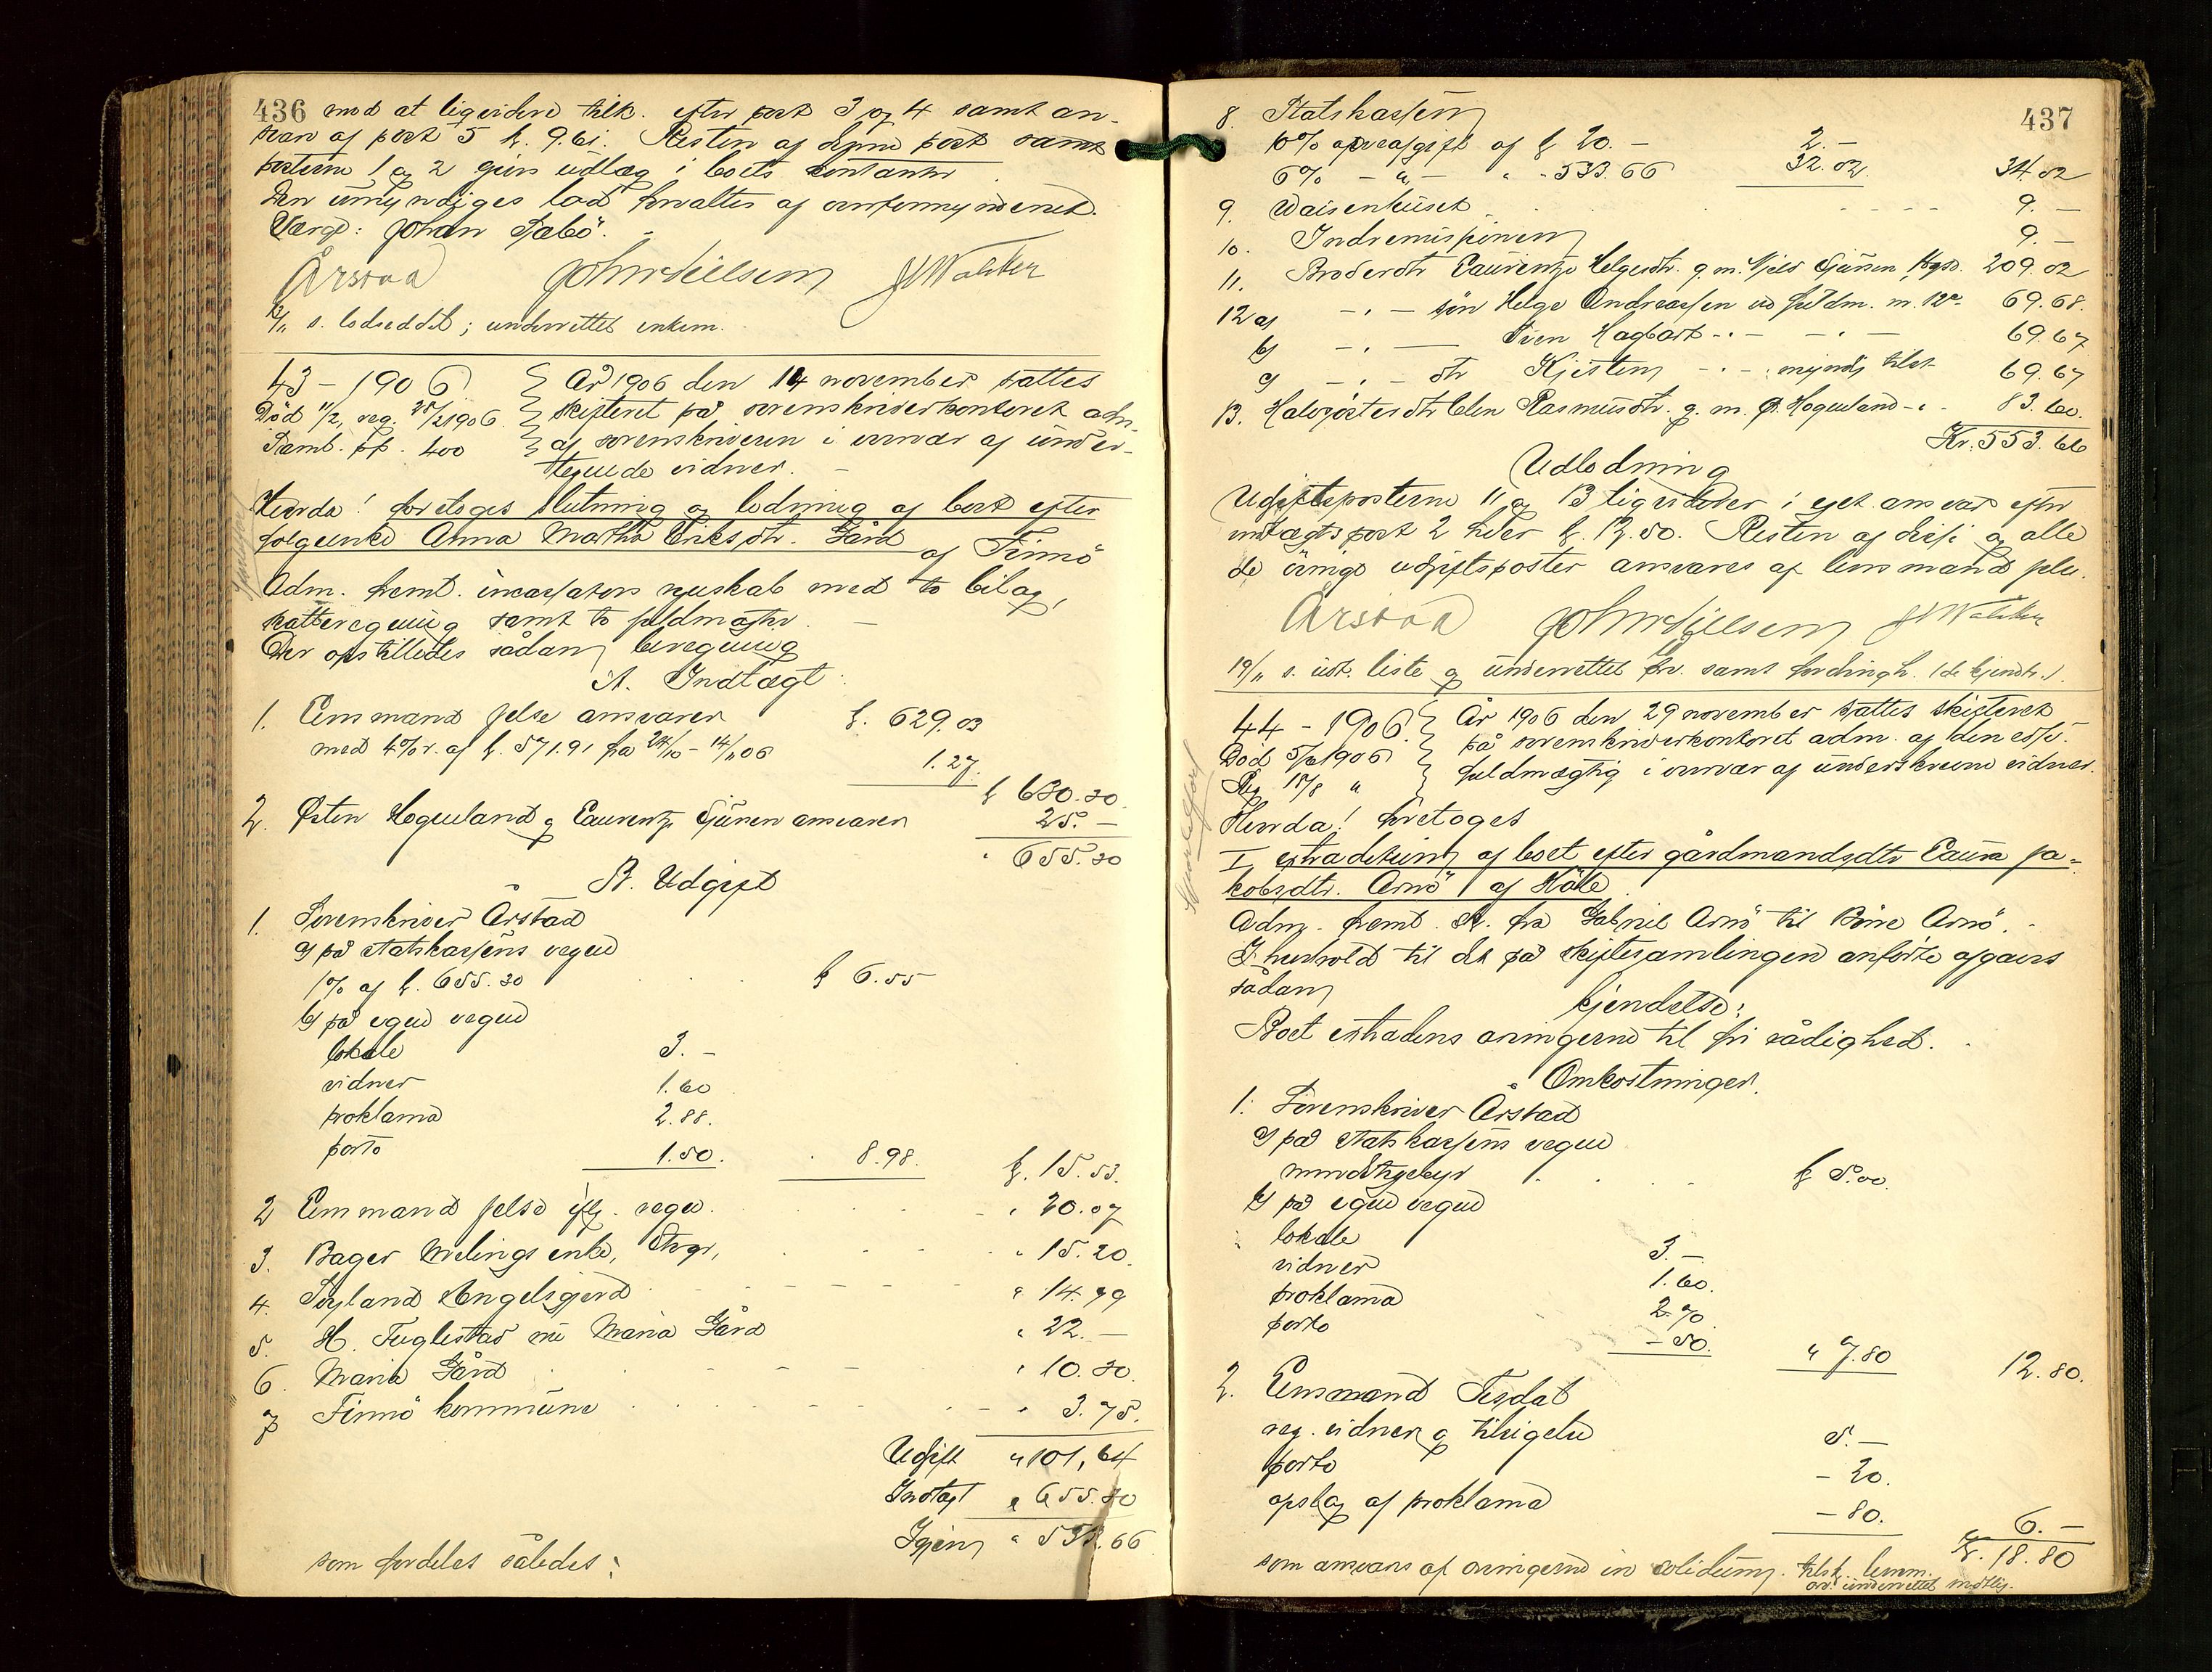 436 mod at ligvidere tilk. efter post 3 og 4 samt an-
svar af post 5 k. 9.61. Resten af denne post samt
posterne 1 og 2 givis udlæg i boets kontanter
Den umyndiges lod forvaltes af overformynderiet.
Værge: Johan Sæbö. -
Årstad John Nielsen
12/11 s. lodseddel; underrettet enken.
43 - 1906
Død 11/2, reg. 25/2 1906
Saml. pp. 400
År 1906 den 14 november sattes
skifteret på sorenskriverkontoret adm.
af sorenskriveren i overvær af under-
tegnede vidner. -
Hvorda! foretoges slutning og lodning af boet efter
følgekone Anna Martha Eriksdtr. Gård af Finnö
Adm. freml. incassators regnskab med to bilag,
skatteregning samt to fuldmagter. -
Der opstilledes sådan beregning
A. Indtægt:
1. Lensmand Jelse ansvarer k. 629.03
med 4% r. af k. 571.91 fra 24/10 - 14/11 06 1.27
k 630.30
2. Østen Hogueland og Laurentze Tjänen ansvarer 25. -
" 655.30
B. Udgift
1. Sorenskriver Årstad
a) på statskassens vegne
1% af k. 655.30 k 6.55
b) på egne vegne
lokale 3. -
vidner 1.60
proklama 2.88.
porto 1.50. 8.98. k. 15.53.
2 Lensmand Jelse iflg. regn. " 20.07
3. Bager Melings enke, Stvgr, " 15.20
4. Søyland Engelsgjerd " 14.79
5. H. Fuglestad nu Maria Gård " 22. -
6. Maria Gård " 10.30.
7 Finnö kommune " 3.75.
Udgift " 101,64
Indtægt " 655.30
Igjen " 553.66
som fordeles således:
437
8. Statskassen
10% arveafgift af k 20. - 2. -
6% - " - " - 533.66 32.02. 34.02
9. Waisenhuset 9. -
10. Indremissionen 9. -
11. Broderdtr Laurentze Helgesdtr. g.m. Njeld Tjänen, 209.02
12 a) - " - sön Helge Andreassen ved fuldm. m. 12c. 69.68.
b) - " - Sven Hagbart - " - 69.67
c) - " - dtr Kjisten - " - myndig tilst 69.67
13. Halvsösterdtr Elen Rasmusdtr. g. m. Ø. Hogueland - " - 83.60.
Kr. 553.66
Udlodning
Udgiftsposterne 11 og 13 ligvideres i eget ansvar efter
indtægtspost 2 hver k. 12.50. Resten af disse og alle
de övrige udgiftsposter ansvares af lensmand Jelse.
Årstad John Nielsen
19/11 s. udt. liste og underrettet arv. samt fordringh. (de kjendte).
44 - 1906.
Död 5/6 1906
Reg 18/8 "
År 1906 den 29 november sattes skifteret
på sorenskriverkontoret adm. af den eds.
fuldmægtig i overvær af underskrevne vidner.
Hvorda! foretoges
I extradering af boet efter gårdmandsdtr Laura Ja-
kobsdtr. Arnö af Håle
Adm. freml. skr. fra Gabriel Arnö til Böre Arnö. -
I henhold til det på skiftesamlingen anförte afgaves
sådan
kjendelse:
Boet extraderes arvingerne til fri rådighed. -
Omkostninger.
1. Sorenskriver Årstad
a) på statskassens vegne
mindstegebyr k 5.00.
b) på egne vegne
lokale 3. -
vidner 1.60.
proklama 2.70
porto - 50. " 7.80 12.80.
2. Lensmand Tesdal
reg. vidner og tilsigelse 5. -
porto - 20.
opslag af proklama - 80. 6. -
k. 18.80
som ansvares af arvingerne in solidum. tilsk. lensm.
arv. underrettet mdtlig.